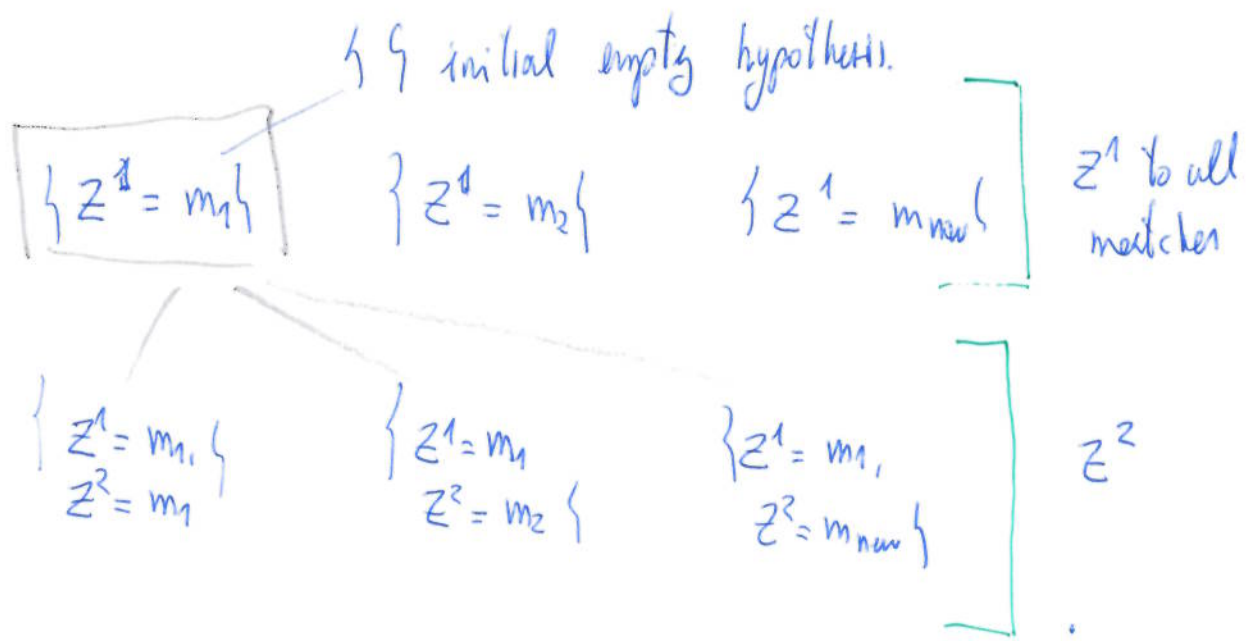 { } initial empty hypothesis.
{ z¹ = m₁ } { z¹ = m₂ } { z¹ = m_new } z¹ to all
matches
{ z¹ = m₁, } { z¹ = m₁ { z¹ = m₁,
z² = m₁ z² = m₂ } z² = m_new } z²